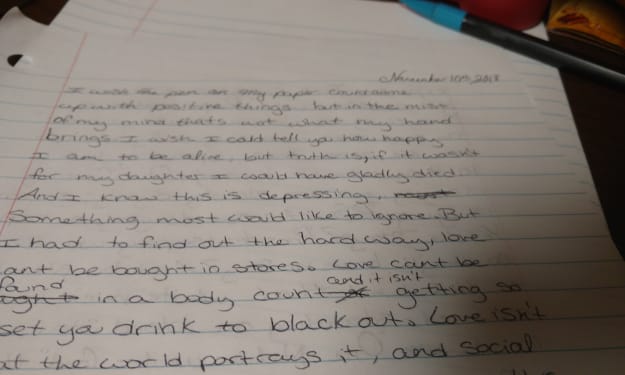 November 10th, 2018
I wish the pen on my paper could come
up with positive things but in the mist
of my mind thats not what my hand
brings I wish I cold tell you how happy
I am to be alive, but truth is, if it wasn't
for my daughter I could have gladly died.
And I know this is depressing,
Something most would like to ignore. But
I had to find out the hard way, love
ant be bought in stores. Love cant be
found and it isn't
in a body count getting so
set you drink to black out. Love isn't
at the world portrays it, and social